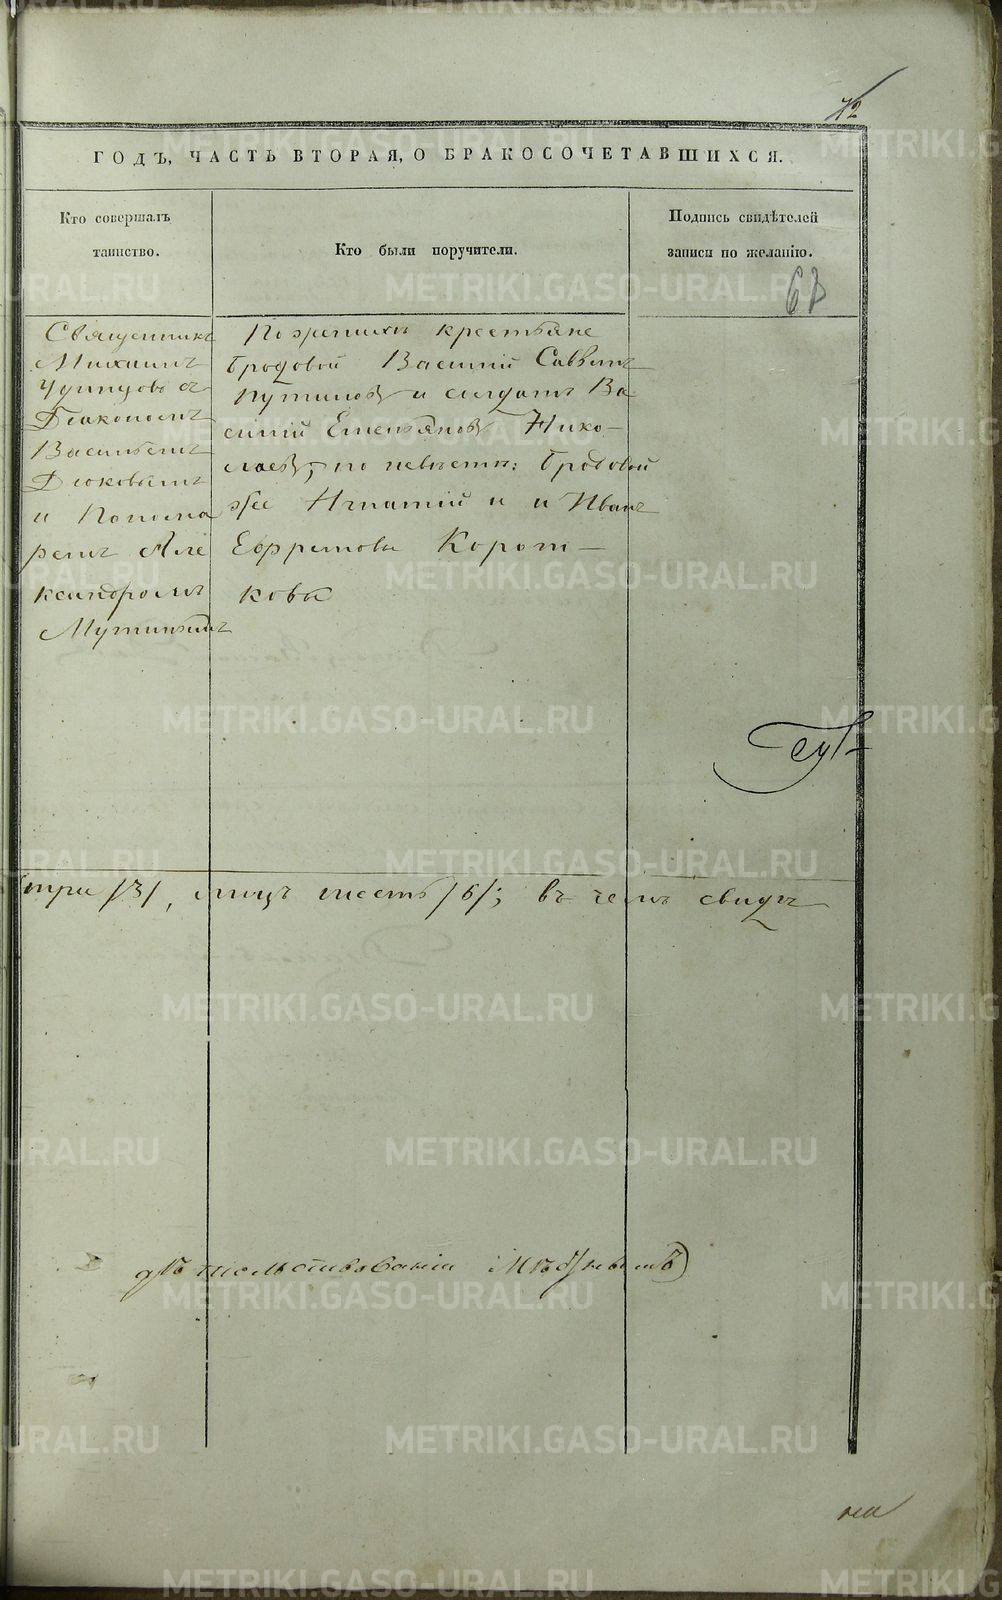 72
ГОДЪ, ЧАСТЬ ВТОРАЯ, О БРАКОСОЧЕТАВШИХСЯ.
Кто совершалъ
таинство.
Кто были поручители.
Подпись свидѣтелей
записи по желанію.
67
Священникъ
Михаилъ
Удинцовъ съ
Діакономъ
Васильемъ
Дюковымъ
и Понома
ремъ Але
ксандромъ
Мутинымъ
По женихѣ крестьяне
Бродовой Василій Саввинъ
Путиловъ и солдатъ Ва
силій Емельяновъ Нико-
лаевъ, по невѣстѣ: Бродовой
же Игнатій и и Иванъ
Ефремовы Корот-
ковы
три /3/, лицъ шесть /6/; въ чемъ свидѣ
тельствованіи
METRIKI.GASO-URAL.RU